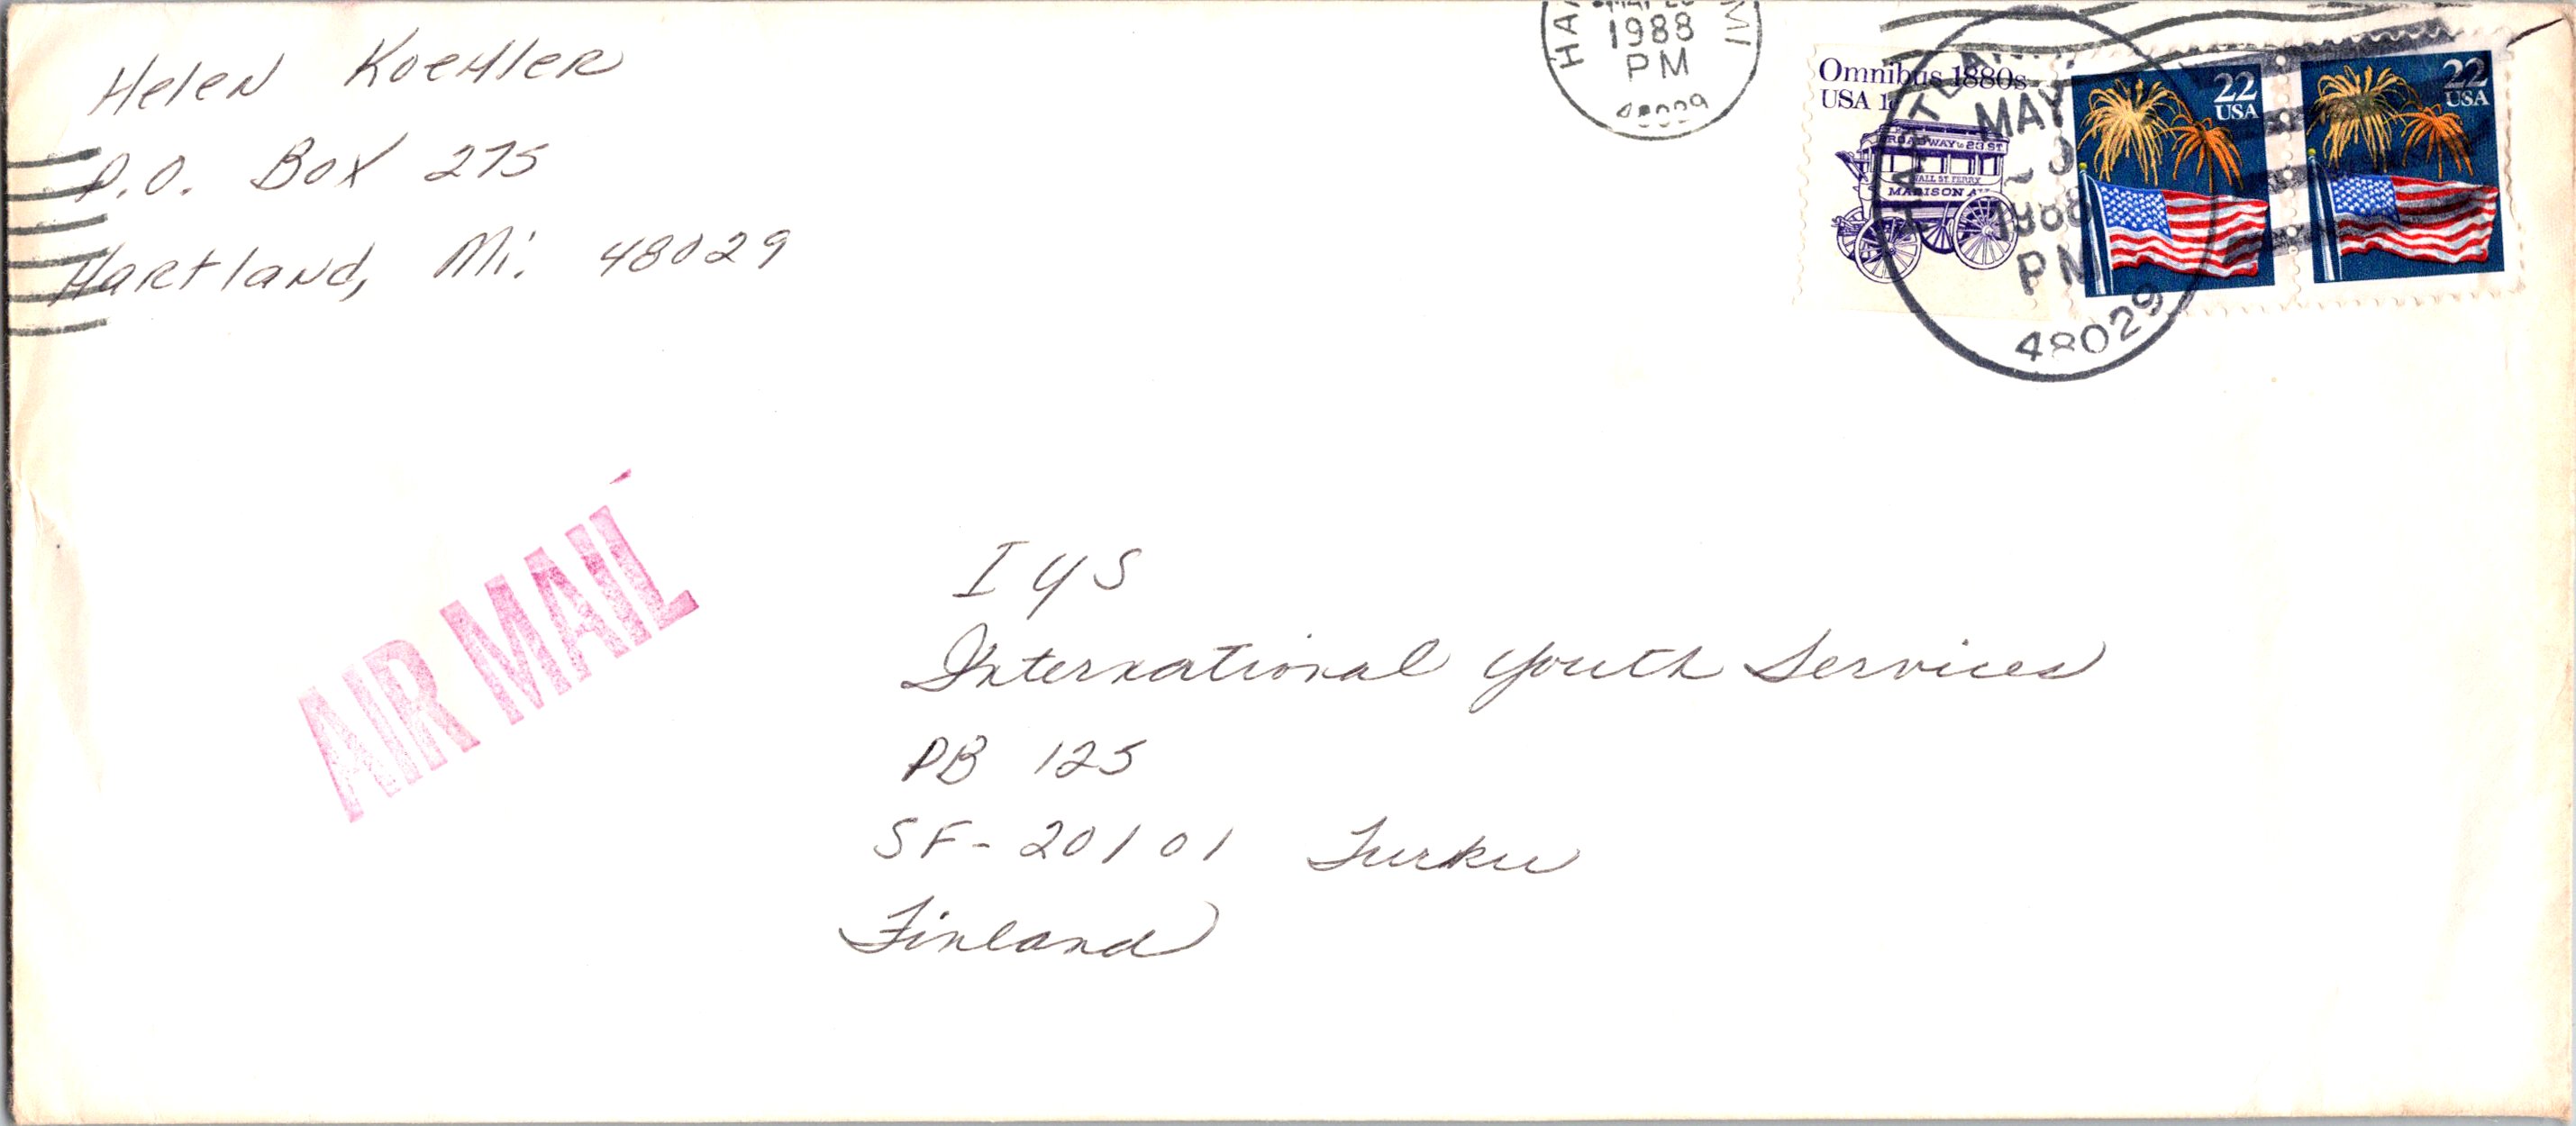 Helen Koehler
P.O. Box 275
Hartland, Mi. 48029
1988
PM
MI
Omnibus 1880s
USA 1c
BROADWAY to 23 ST.
WALL ST. FERRY
MADISON AV
HARTLAND
MAY
1988
PM
48029
22
USA
22
USA
AIR MAIL
IYS
International Youth Services
PB 125
SF-20101 Turku
Finland